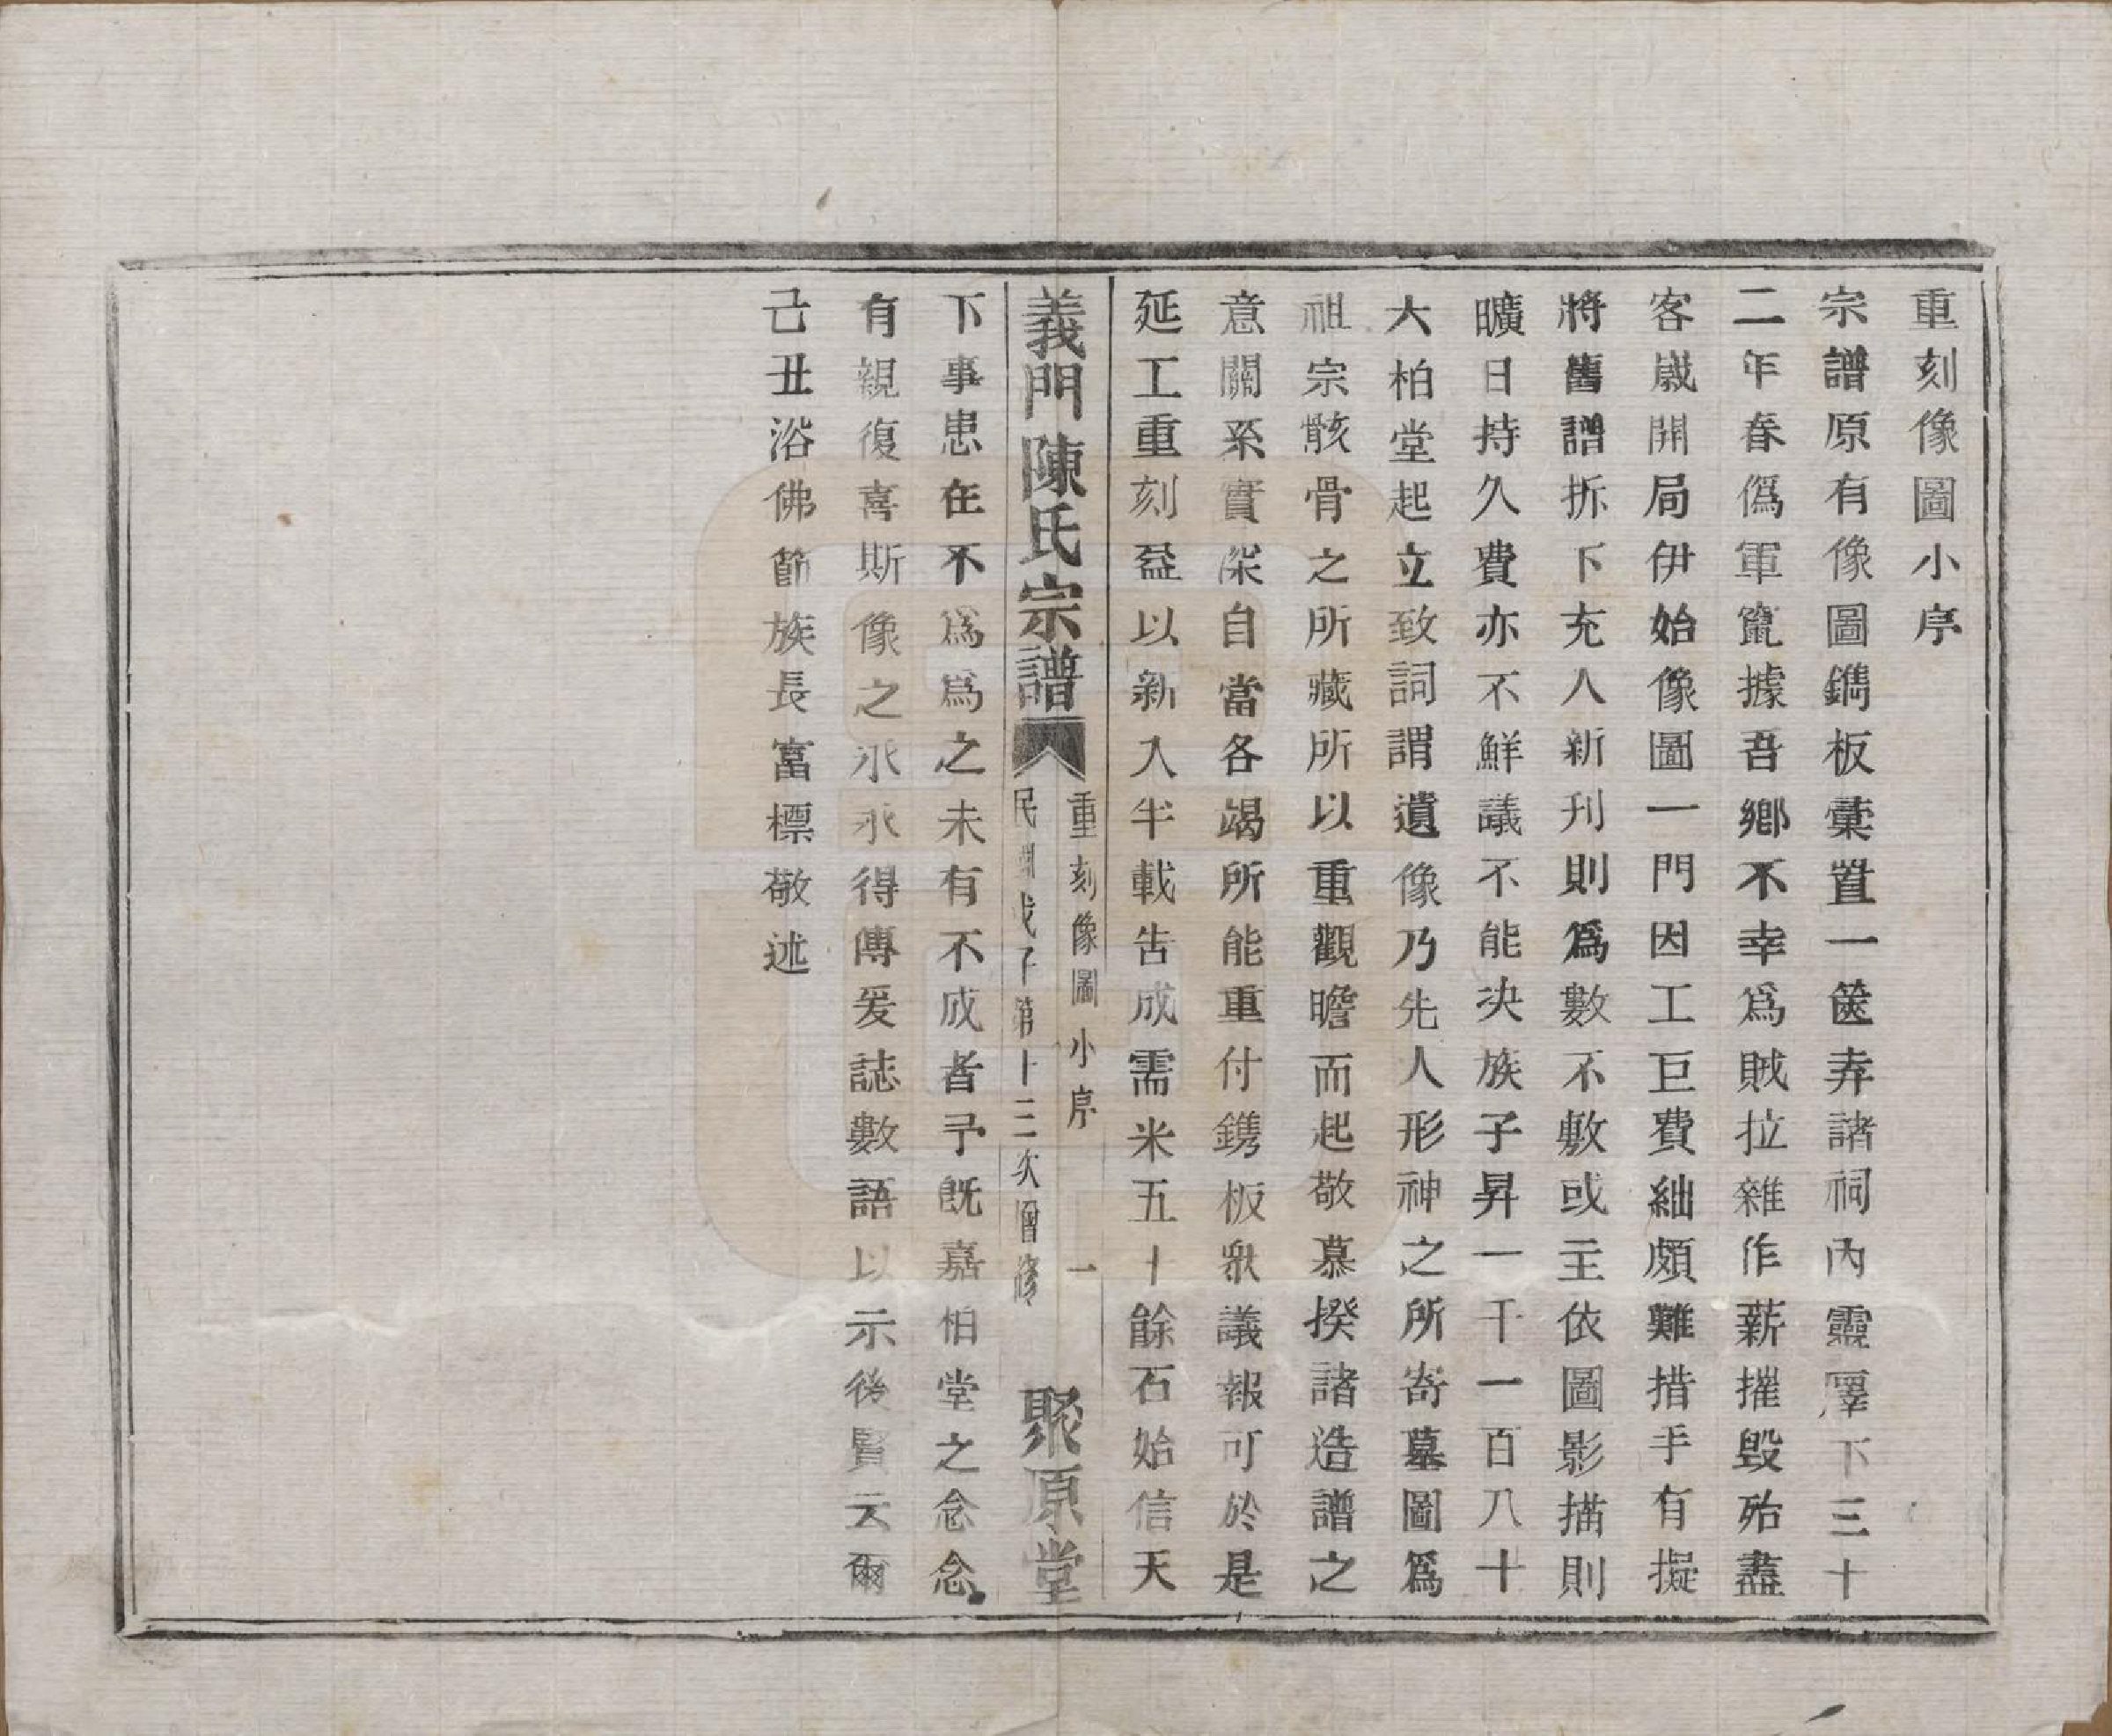 重刻像圖小序
宗譜原有像圖鐫板彙置一篋弆諸祠內靈澤下三十
二年春僞軍竄據吾鄕不幸爲賊拉雜作薪摧毀殆盡
客歲開局伊始像圖一門因工巨費絀頗難措手有擬
將舊譜拆下充人新刊則爲數不敷或主依圖影描則
曠日持久費亦不鮮議不能決族子昇一千一百八十
大柏堂起立致詞謂遺像乃先人形神之所寄墓圖爲
祖宗骸骨之所藏所以重觀瞻而起敬慕揆諸造譜之
意關系實深自當各竭所能重付鐫板衆議報可於是
延工重刻益以新入半載告成需米五十餘石始信天
義門陳氏宗譜
重刻像圖小序 一
民國戊子第十三次增修
聚原堂
下事患在不爲爲之未有不成者予既嘉柏堂之念念
有親復喜斯像之永永得傳爰誌數語以示後賢云爾
己丑浴佛節族長富標敬述